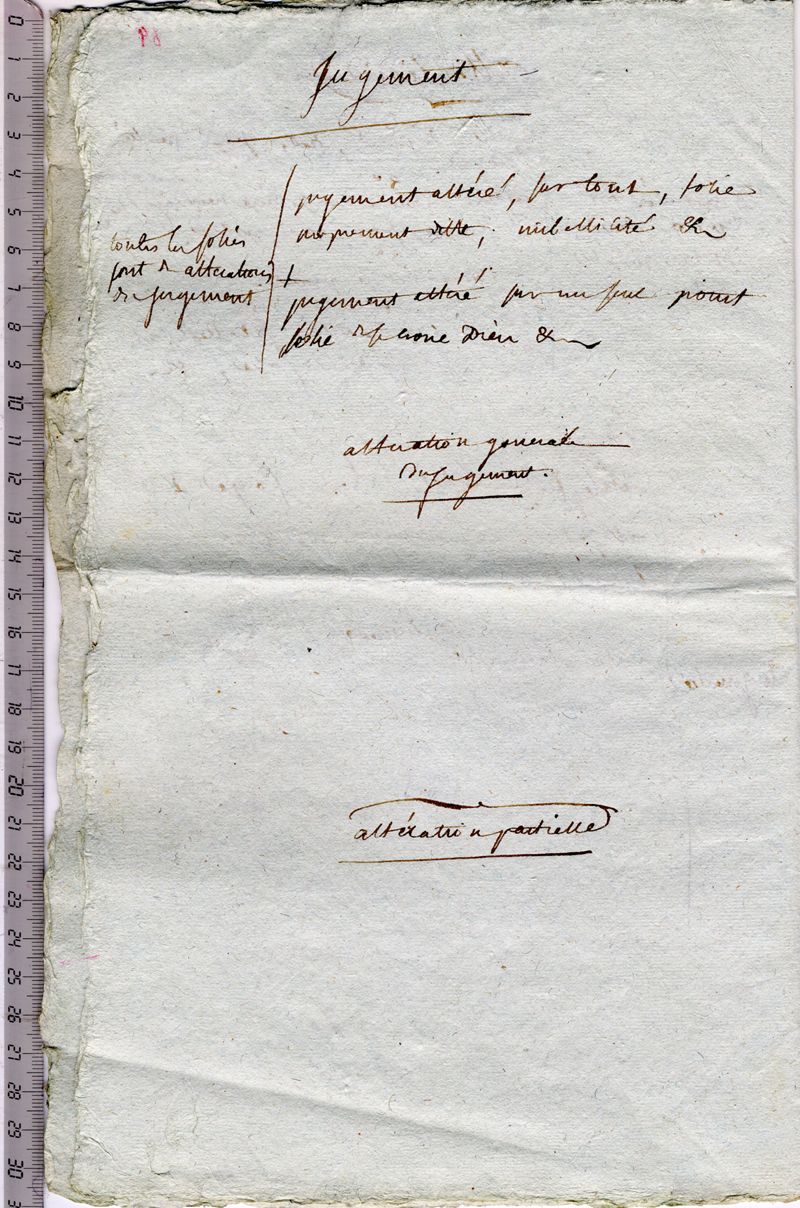 Jugement
jugement altéré, sur tout, folie
proprement ditte, imbellicité &c
toutes les folies
sont des alterations
du jugement
jugement altéré sur un seul point
folie de se croire Dieu &c
alteration generale
du jugement.
altération partielle